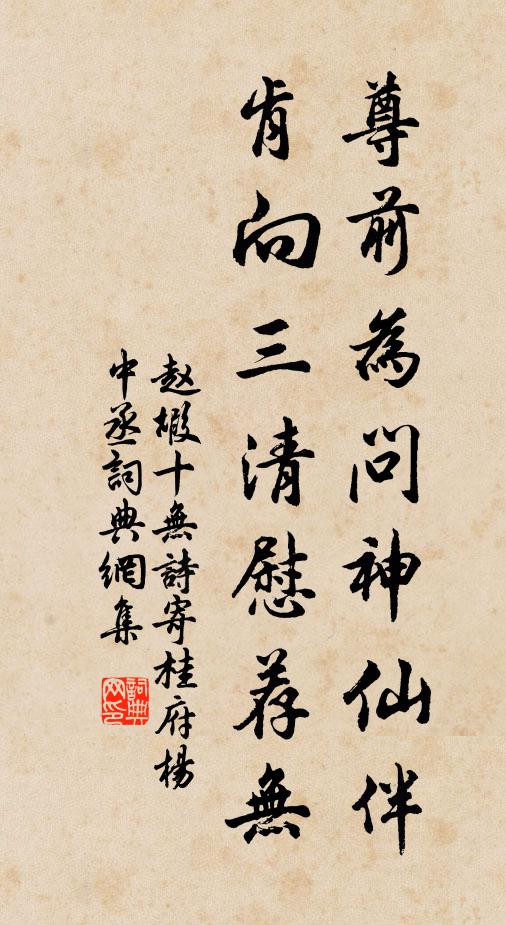 尊前為問神仙伴
肯向三清慰荐無
赵椵十無詩寄桂府楊
中丞詞典網集
詞典网印